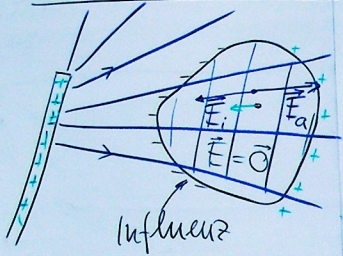 E⃗ᵢ
E⃗ₐ
E⃗ = 0⃗
Influenz